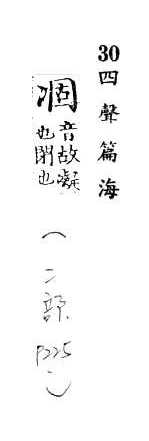 30四聲篇海
凅音故凝
也閉也
(冫部
P225)